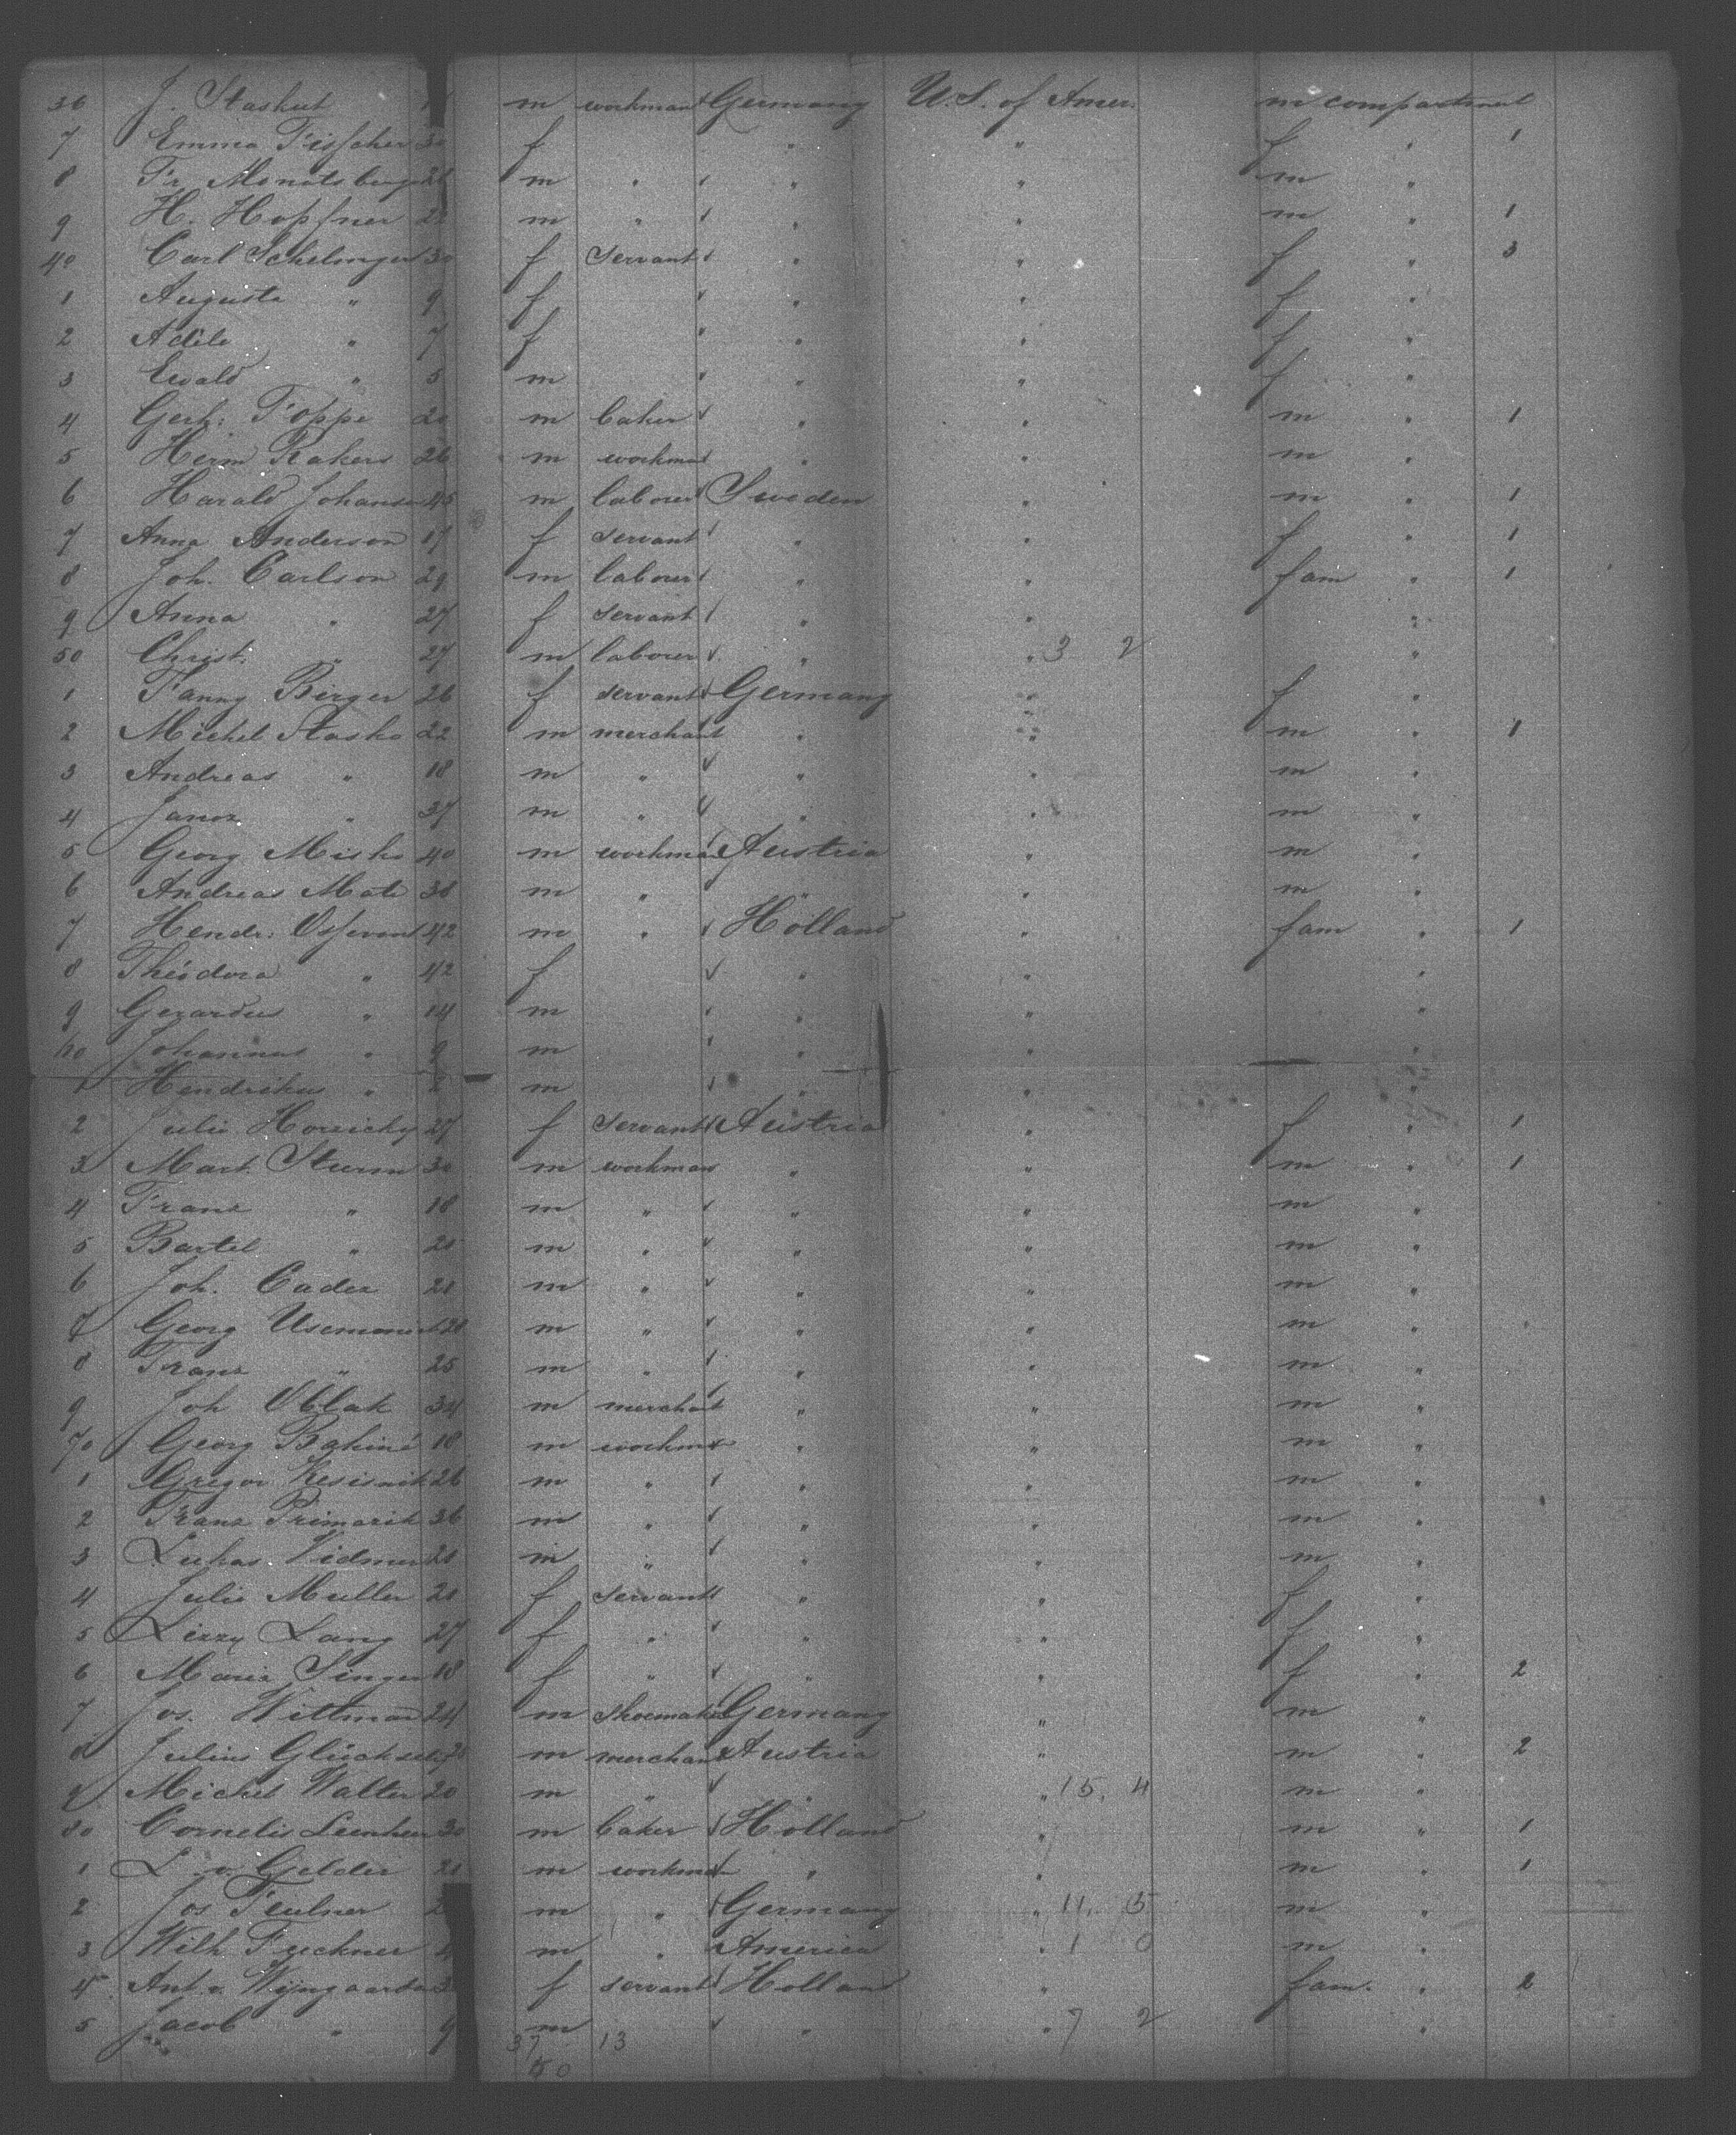 36 J. Staskut m workman Germany U.S. of Amer. m compartment
7 Emma Fisscher 30 f " " f " 1
8 Fr. Monatsberger m " " " m "
9 H. Hopfner 22 m " " " m " 1
40 Carl Schelinger 30 f Servant " " f " 3
1 Augusta " 9 f " " f "
2 Adele " 7 f " " f "
3 Ewald " 5 m " " f "
4 Gerh: Foppe 20 m baker " " m " 1
5 Herm Rakers 26 m workman " " m "
6 Harald Johanson 45 m laborer Sweden " m " 1
7 Anna Anderson 17 f servant " " f " 1
8 Joh. Carlson 29 m laborer " " fam " 1
9 Anna " 27 f servant " " "
50 Christ. " 27 m laborer " " 3 2 "
1 Fanny Berger 26 f servant Germany " f "
2 Michel Stasko 22 m merchant " " m " 1
3 Andreas " 18 m " " " m "
4 Janos " 37 m " " " m "
5 Georg Misko 40 m workman Austria " m "
6 Andreas Mate 38 m " " " m "
7 Hendr: 42 m " Holland " fam " 1
8 Théodora " 42 f " " "
9 Gerardus " 14 m " " "
60 Johannus " 9 m " " "
1 Hendrikus " m " " "
2 Julie Horzicky 27 f Servant Austria " f " 1
3 Mart. Sturm 30 m workman " " m " 1
4 Franz " 18 m " " " m "
5 Bartel " 20 m " " " m "
6 Joh. Cadez 28 m " " " m "
7 Georg m " " " m "
8 Franz " 25 m " " " m "
9 Joh Oblak 34 m merchant " " m "
70 Georg 18 m workman " " m "
1 Gregor 26 m " " " m "
2 Franz 36 m " " " m "
3 Lukas Vidmer m " " " m "
4 Julie Muller 20 f servant " " f "
5 Lizzy Lang 27 f " " " f "
6 Maria Singer 18 f " " " f " 2
7 Jos. Wittman 24 m Shoemaker Germany " m "
8 Julius Glückselig m merchant Austria " m " 2
9 Michel Walter 20 m " " " 15. 4 m "
80 Cornelis 30 m baker Holland " m " 1
1 L. v. Gelder m workman " " m " 1
2 Jos Feulner m " Germany " 11. 5 m "
3 Wilh Feckner m " America " 1 0 m "
4 Ant. v. Wijngaarden f servant Holland " fam. " 2
5 Jacob " 9 m " " 7 2 "
37 13
50